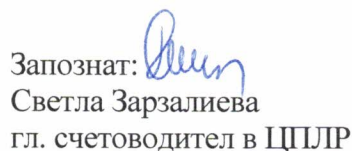 Запознат:
Светла Зарзалиева
гл. счетоводител в ЦПЛР